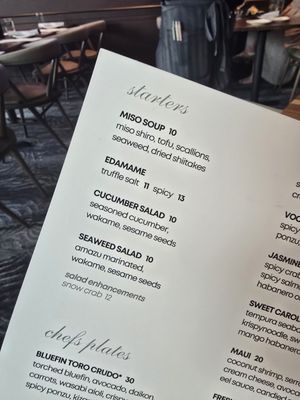 starters
MISO SOUP 10
miso shiro, tofu, scallions,
seaweed, dried shiitakes
EDAMAME
truffle salt 11 spicy 13
CUCUMBER SALAD 10
seasoned cucumber,
wakame, sesame seeds
SEAWEED SALAD 10
amazu marinated,
wakame, sesame seeds
salad enhancements
snow crab 12
chefs plates
BLUEFIN TORO CRUDO* 30
torched bluefin, avocado, daikon,
carrots, wasabi aioli, crispy
spicy ponzu, kizami
VOL
spicy
ponzu,
JASMINE
spicy cra
spicy salmo
habanero a
SWEET CAROL
tempura seaba
krispynoodle, sw
mango habanero
MAUI 20
coconut shrimp, sem
cream cheese, avoca
eel sauce, candied c
FRE